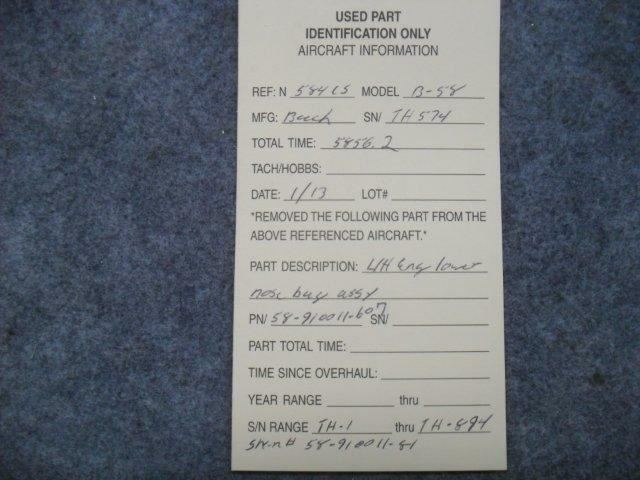 USED PART
IDENTIFICATION ONLY
AIRCRAFT INFORMATION
REF: N 584CS MODEL B-58
MFG: Beech SN/ TH574
TOTAL TIME: 5856.2
TACH/HOBBS:
DATE: 1/13 LOT#
*REMOVED THE FOLLOWING PART FROM THE
ABOVE REFERENCED AIRCRAFT.*
PART DESCRIPTION: L/H Eng lower
nose bug assy
PN/ 58-910011-607 SN/
PART TOTAL TIME:
TIME SINCE OVERHAUL:
YEAR RANGE thru
S/N RANGE TH-1 thru TH-894
58-910011-81